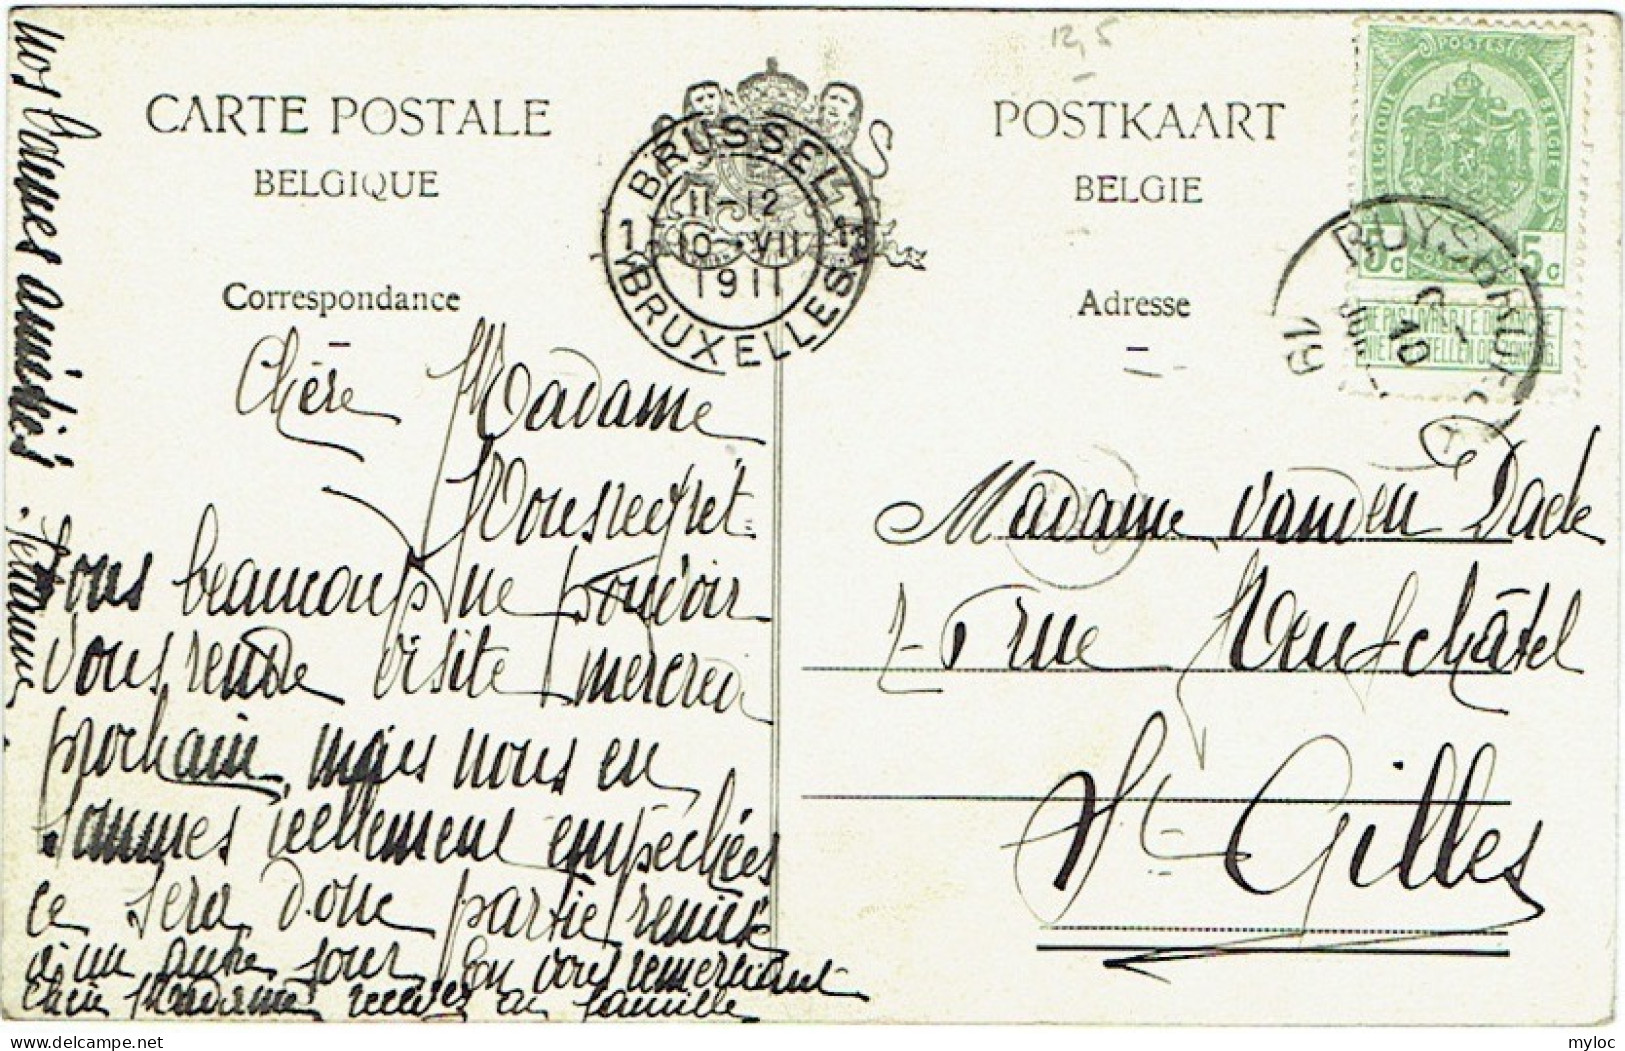 CARTE POSTALE
BELGIQUE
Correspondance
POSTKAART
BELGIE
Adresse
12,5
BRUSSEL
11-12
10 VII
1911
1 BRUXELLES 1
POSTES
BELGIQUE
BELGIE
5c 5c
NE PAS LIVRER LE DIMANCHE
NIET BESTELLEN OP ZONDAG
RUYSBROECK
10
19
Chère Madame
Nous regret-
tons beaucoup ne pouvoir
vous rendre visite mercredi
prochain, mais nous en
sommes réellement empêchées
ce sera donc partie remise
à un autre jour En vous remerciant
chère Madame recevez en famille
nos bonnes amitiés. Jeanne
Madame Vanden Daele
7 rue Neufchâtel
St Gilles
myloc